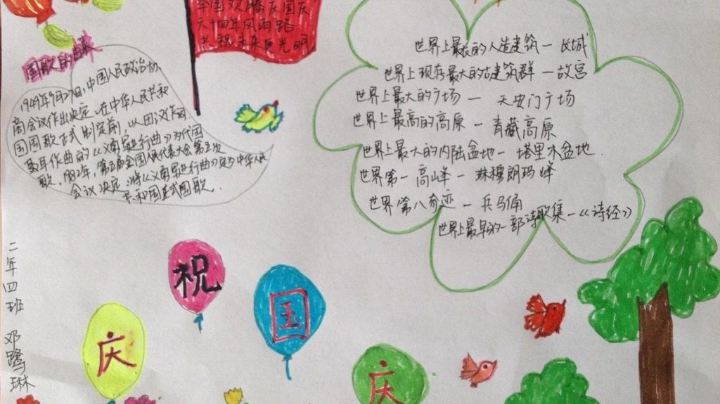 国歌的由来
1949年9月27日,中国人民政治协
商会议作出决定,在中华人民共和
国国歌正式制定前,以田汉作词
聂耳作曲的《义勇军进行曲》为代国
歌。1982年,第五届全国人民代表大会第五次
会议决定,将《义勇军进行曲》定为中华人民
共和国正式国歌。
举国欢腾庆国庆
六十四年风雨路
共祝未来更光明
世界上最长的人造建筑—长城
世界上现存最大的古建筑群—故宫
世界上最大的广场—天安门广场
世界上最高的高原—青藏高原
世界上最大的内陆盆地—塔里木盆地.
世界第一高峰—珠穆朗玛峰
世界第八奇迹—兵马俑
世界上最早的一部诗歌集—《诗经》
二年四班 邓鹭琳
庆
祝
国
庆